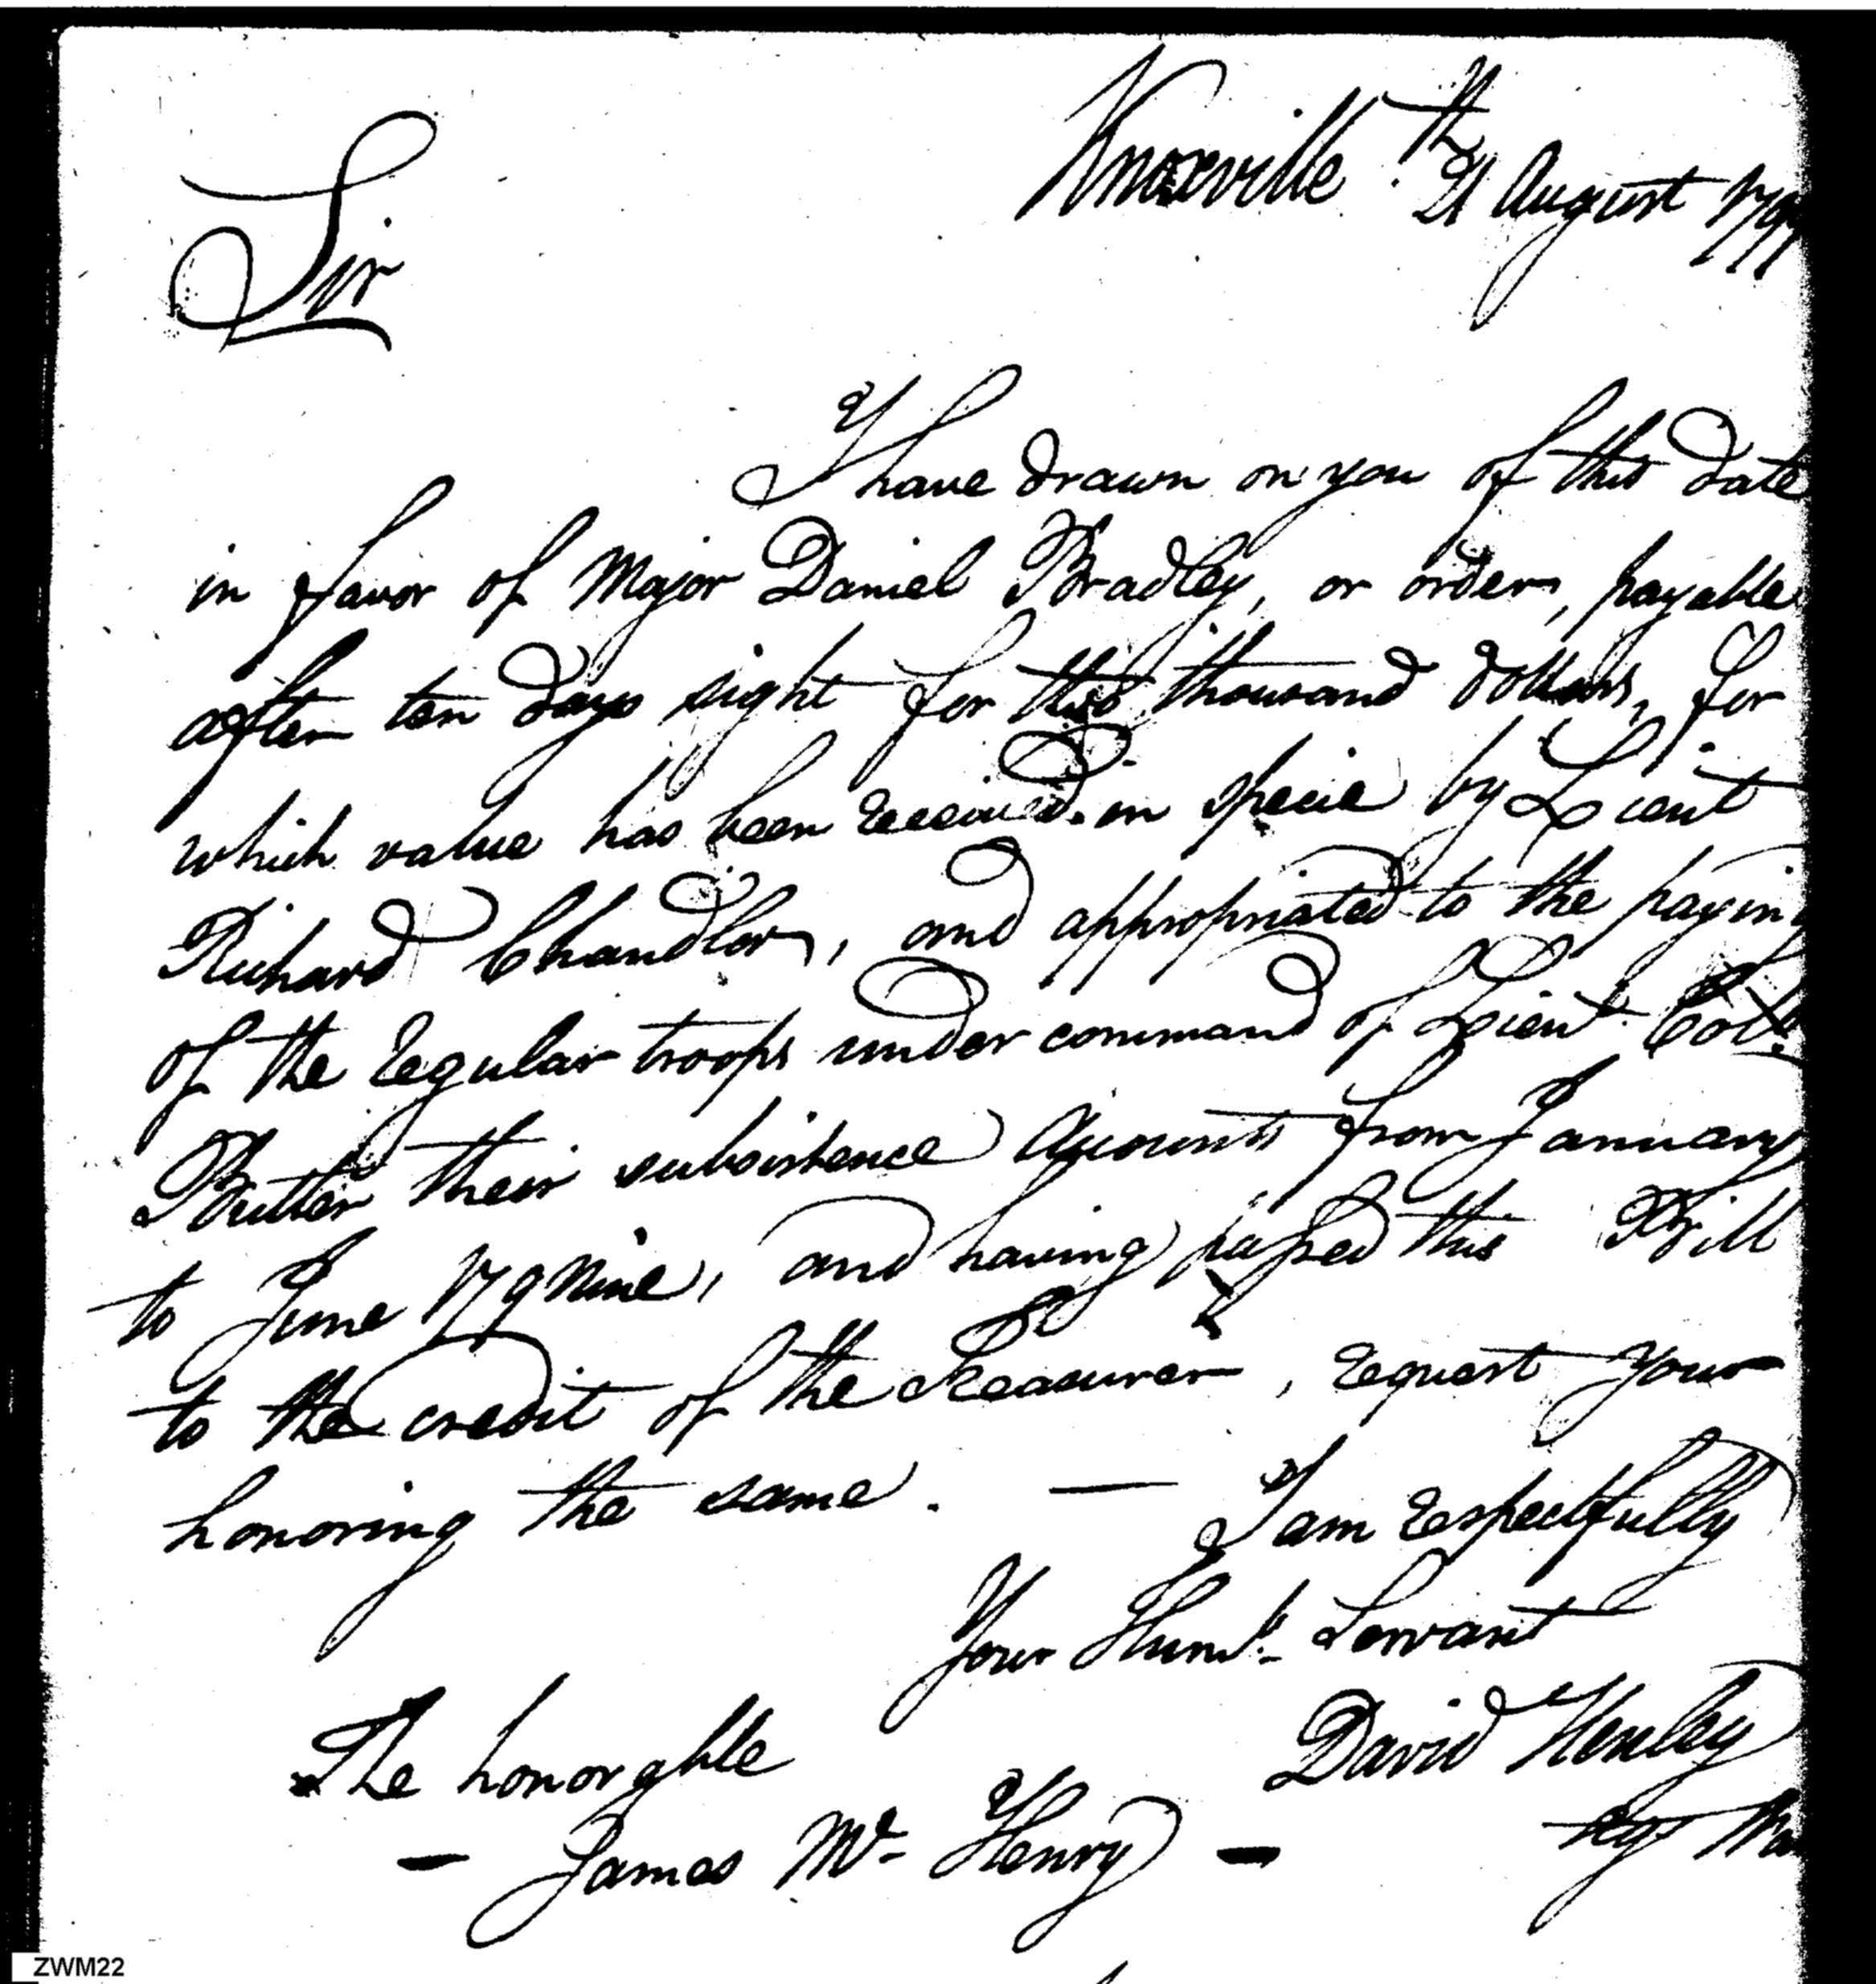 Knoxville 21th August 179
Sir
I have drawn on you of this date
in favor of Major Daniel Bradley, or order, payable
after ten days sight for two thousand dollars, for
which value has been received in specie by Lieut
Richard Chandler, and appropriated to the paying
of the regular troops under command of Lieut. Colo.
Butler their subsistence Accounts from January
to June 179 nine, and having passed this Bill
to the credit of the Treasurer, request your
honoring the same. — I am respectfully
Your Humb. Servant
David Henley
Agt War
The honorable
— James Mc Henry —
ZWM22